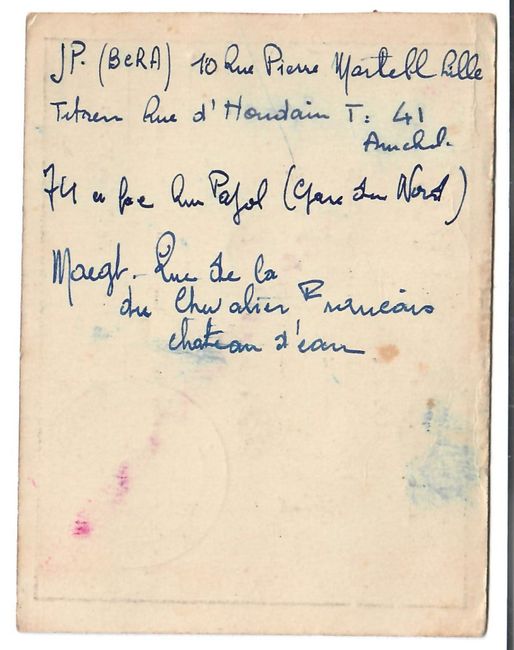 JP. (BCRA) 10 Rue Pierre Martel Lille
Rue d'Houdain T: 41
Auchel.
74 Rue Pajol (Gare du Nord)
Maegt. Rue de la
du Chevalier Français
chateau d'eau